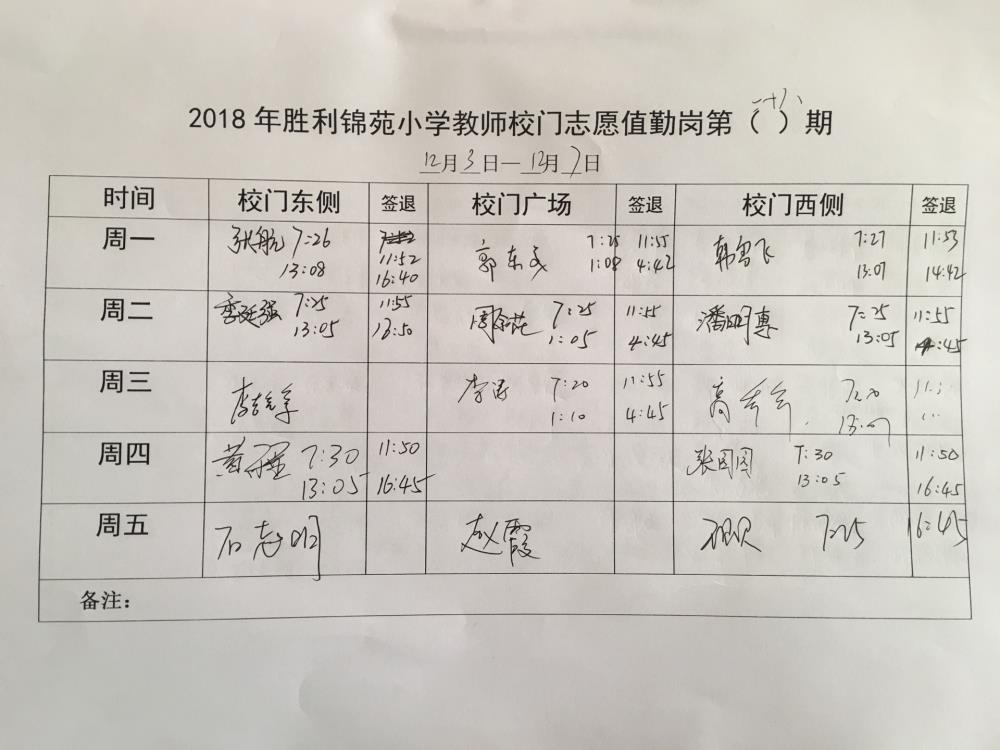 2018年胜利锦苑小学教师校门志愿值勤岗第( )期
12月3日—12月7日
时间 校门东侧 签退 校门广场 签退 校门西侧 签退
周一 张航 7:26 13:08 11:52 16:40 郭东 7:25 1:08 11:55 4:42 韩 飞 7:27 13:07 11:53 14:42
周二 季延强 7:25 13:05 11:55 13:50 周 7:25 1:05 11:55 4:45 潘明 7:25 13:05 11:55 4:45
周三 李 7:20 1:10 11:55 4:45 高 7:20 13:07 11:
周四 黄 7:30 13:05 11:50 16:45 张图图 7:30 13:05 11:50 16:45
周五 石志明 赵霞 7:25 16:45
备注：